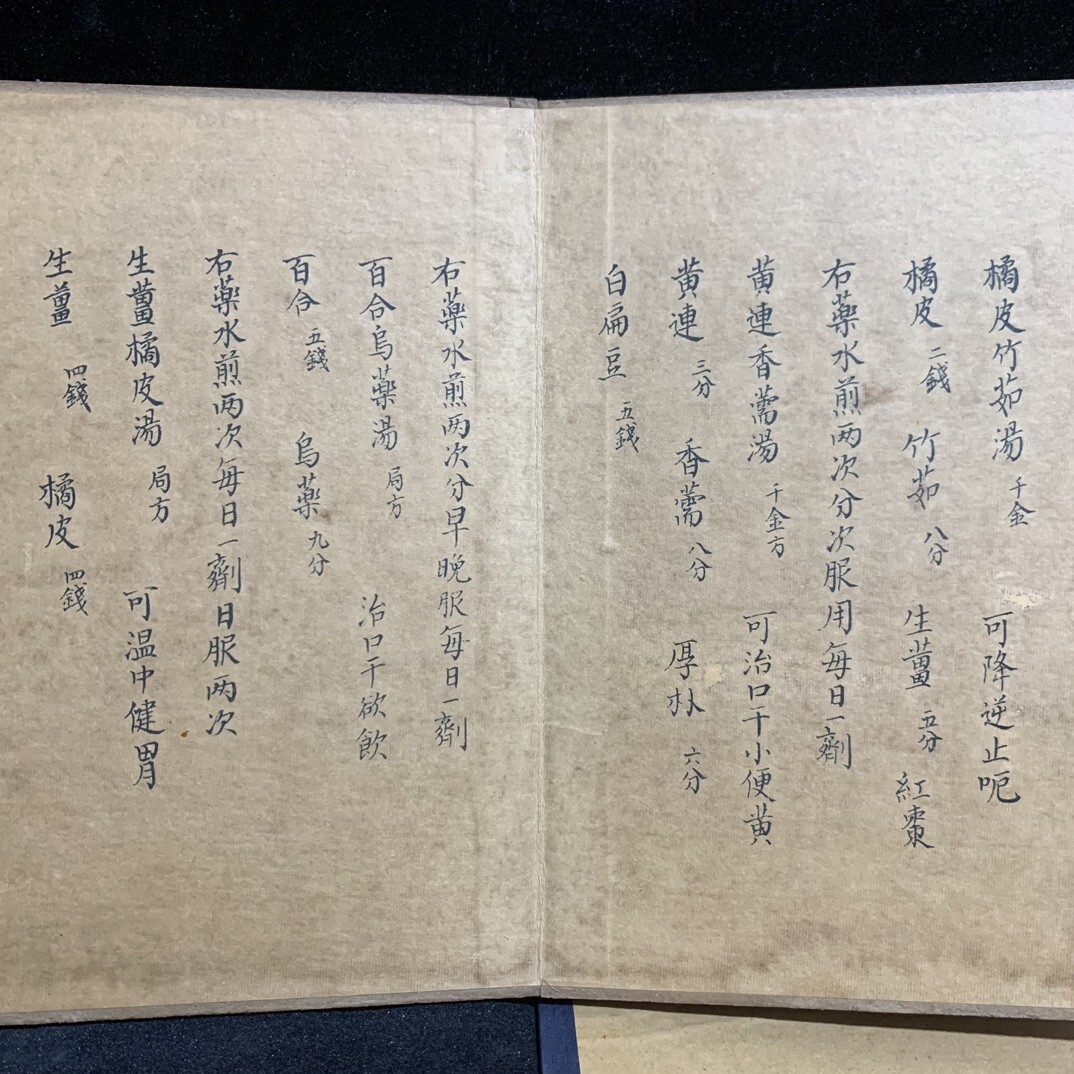 橘皮竹茹湯 千金 可降逆止呃
橘皮 二錢 竹茹 八分 生薑 五分 紅棗
右藥水煎两次分次服用每日一劑
黄連香薷湯 千金方 可治口干小便黄
黄連 三分 香薷 八分 厚朴 六分
白扁豆 五錢
右藥水煎两次分早晚服每日一劑
百合烏藥湯 局方 治口干欲飲
百合 五錢 烏藥 九分
右藥水煎两次每日一劑日服两次
生薑橘皮湯 局方 可温中健胃
生薑 四錢 橘皮 四錢